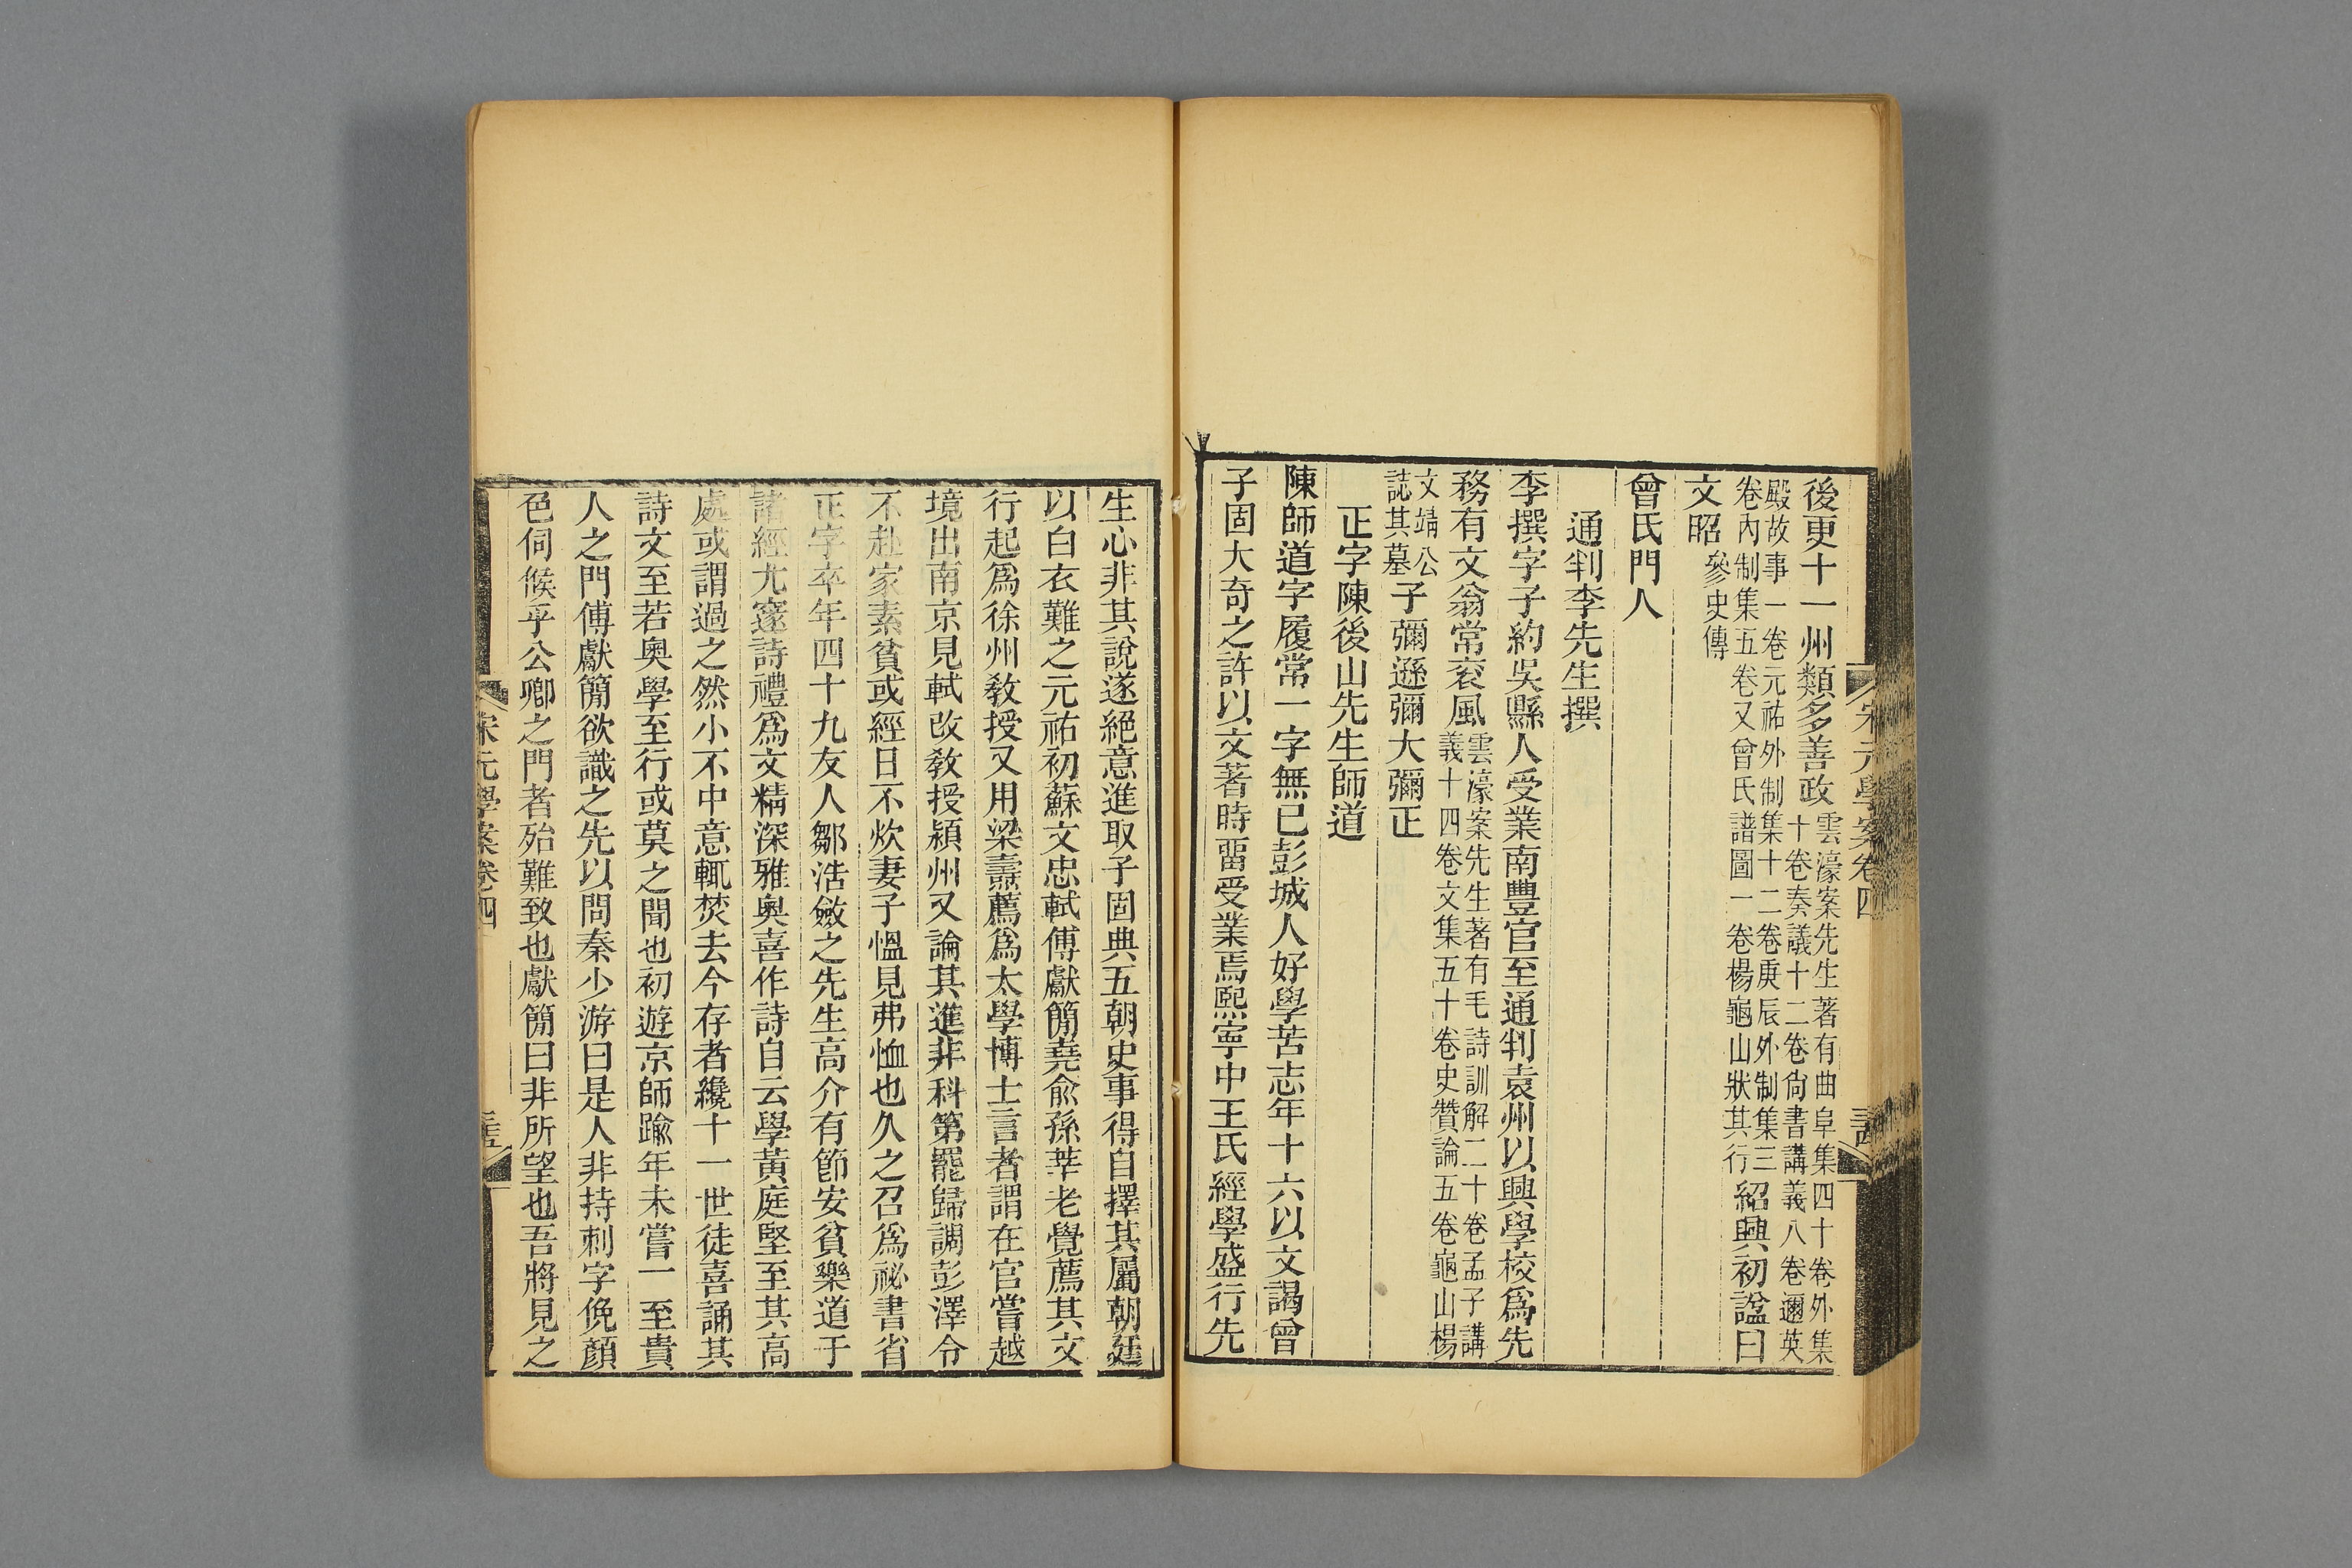 宋元學案卷四
後更十一州類多善政雲濠案先生著有曲阜集四十卷外集十卷奏議十二卷尙書講義八卷邇英
殿故事一卷元祐外制集十二卷庚辰外制集三卷內制集五卷又曾氏譜圖一卷楊龜山狀其行紹興初諡曰
文昭參史傳
曾氏門人
通判李先生撰
李撰字子約吳縣人受業南豐官至通判袁州以興學校爲先
務有文翁常袞風雲濠案先生著有毛詩訓解二十卷孟子講義十四卷文集五十卷史贊論五卷龜山楊
文靖公誌其墓子彌遜彌大彌正
正字陳後山先生師道
陳師道字履常一字無已彭城人好學苦志年十六以文謁曾
子固大奇之許以文著時畱受業焉熙寧中王氏經學盛行先
生心非其說遂絕意進取子固典五朝史事得自擇其屬朝廷
以白衣難之元祐初蘇文忠軾傅獻簡堯俞孫莘老覺薦其文
行起爲徐州敎授又用梁燾薦爲太學博士言者謂在官嘗越
境出南京見軾改敎授潁州又論其進非科第罷歸調彭澤令
不赴家素貧或經日不炊妻子慍見弗恤也久之召爲祕書省
正字卒年四十九友人鄒浩斂之先生高介有節安貧樂道于
諸經尤邃詩禮爲文精深雅奧喜作詩自云學黃庭堅至其高
處或謂過之然小不中意輒焚去今存者纔十一世徒喜誦其
詩文至若奧學至行或莫之聞也初遊京師踰年未嘗一至貴
人之門傅獻簡欲識之先以問秦少游曰是人非持刺字俛顔
色伺候乎公卿之門者殆難致也獻簡曰非所望也吾將見之
宋元學案卷四